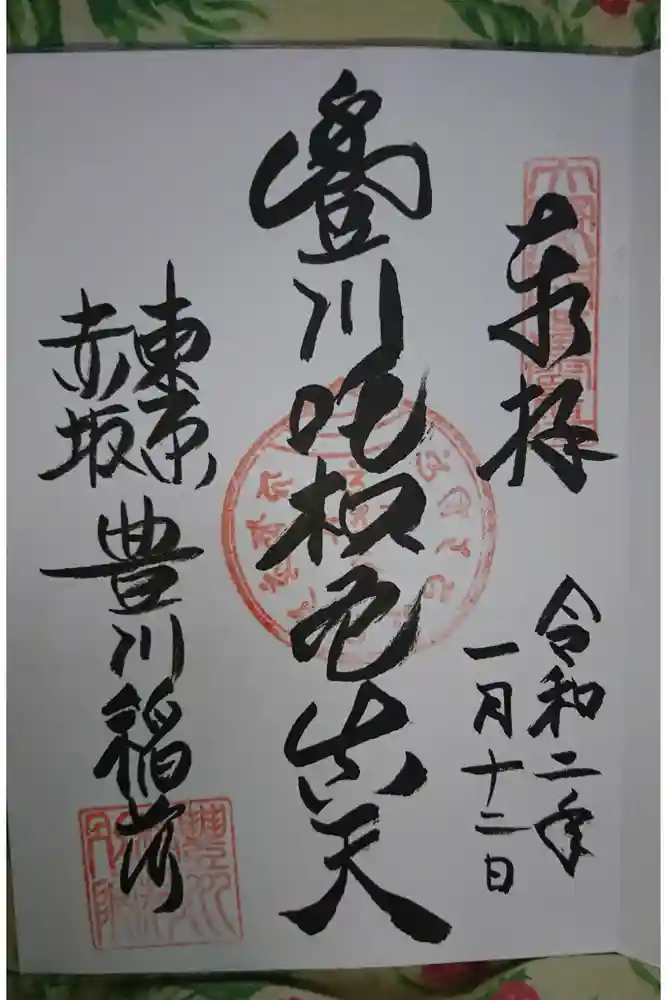 奉拝
令和二年
一月十二日
豊川吒枳尼真天
東京
赤坂
豊川稲荷